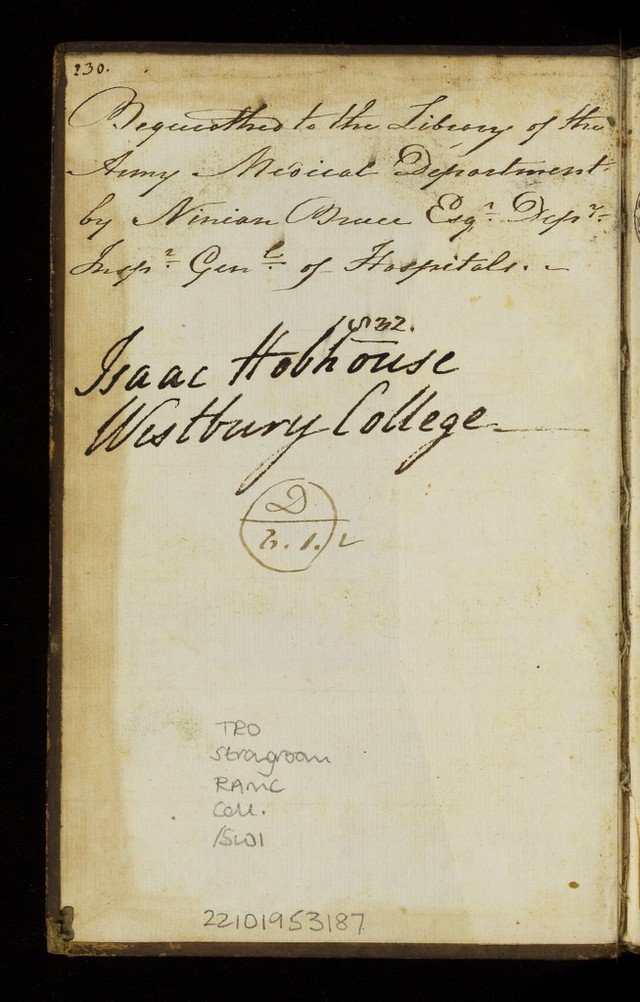 230.
Bequeathed to the Library of the
Army Medical Department
by Ninian Bruce Esqr. Depy.
Inspr. Genl. of Hospitals. –
1832.
Isaac Hobhouse
Westbury College
D
1.
TRO
RAMC
Coll.
22101953187